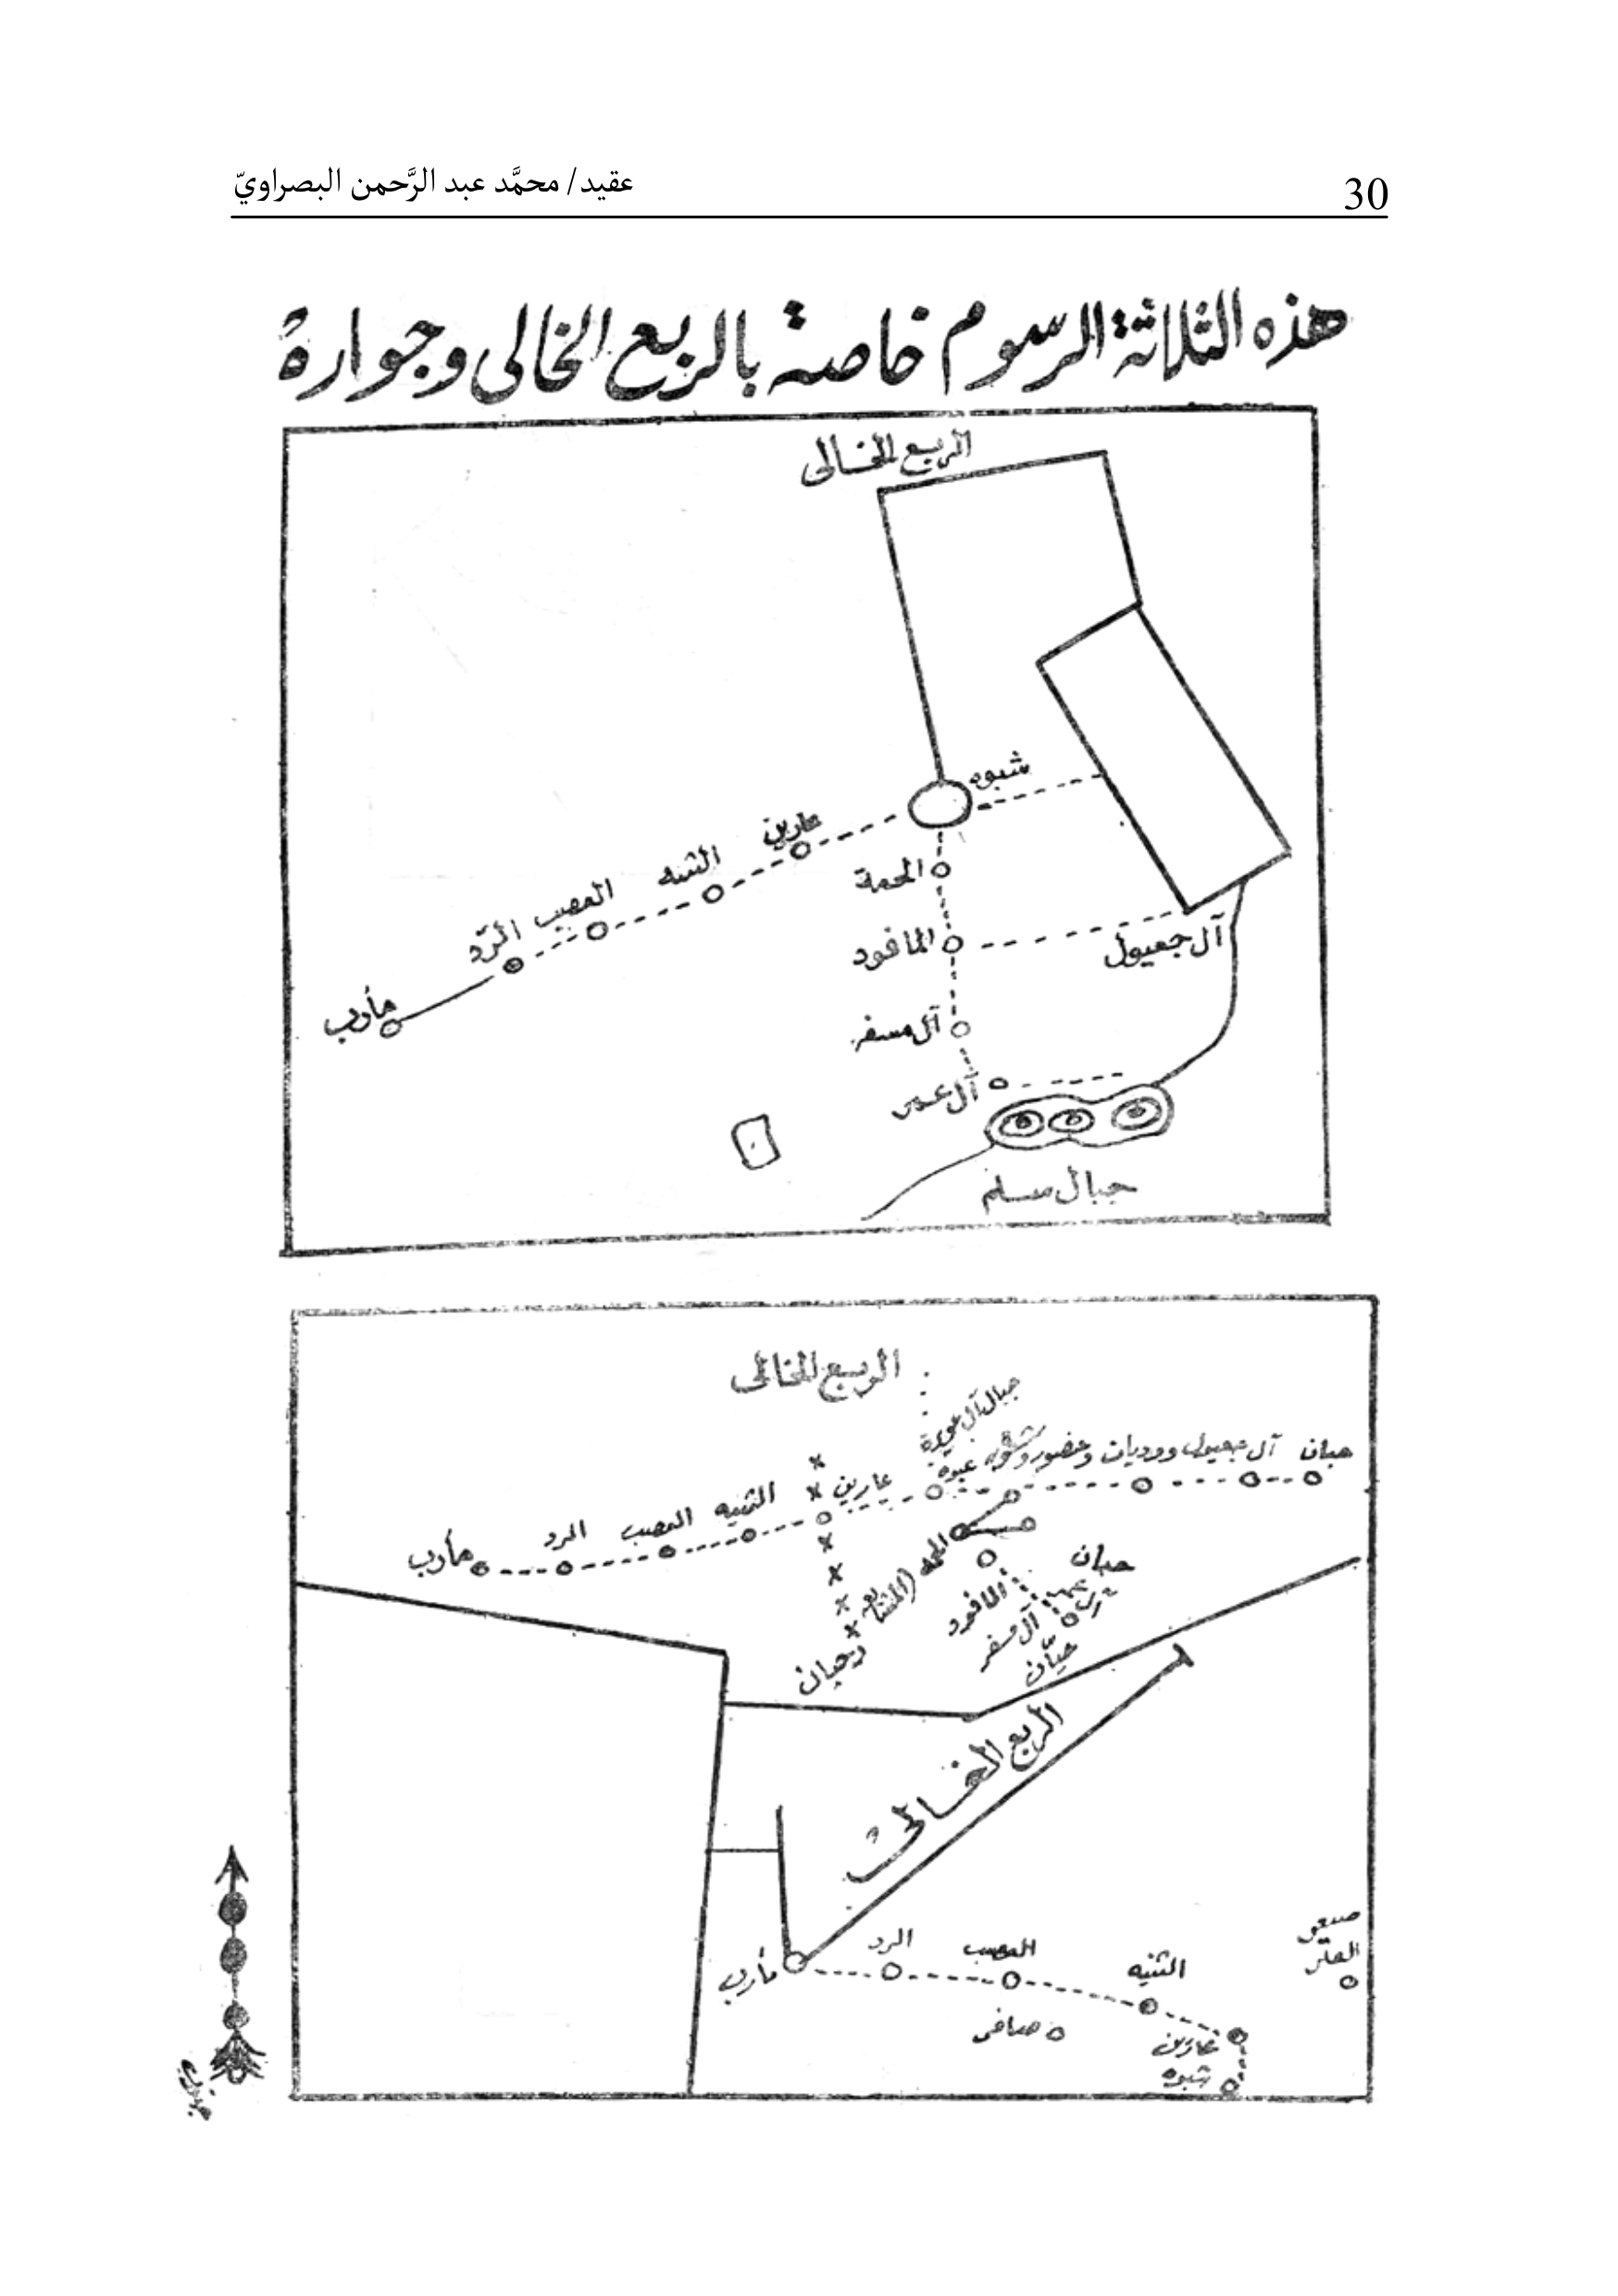 30
عقيد/ محمَّد عبد الرَّحمن البصراويّ
هذه الثلاثة الرسوم خاصة بالربع الخالى وجواره
الربع الخالى
شبوه
عارين
الثنيه
العصيب
الرّد
مأرب
الحمة
المافود
آل جعيول
آل مسفر
آل عمر
جبال سلم
الربع الخالى
جبال آل
حبان
آل جعيول ووديان
عارين
الثنيه
العصيب
الرد
مأرب
حبان
المافود
آل مسفر
حبّان
الربع الخالى
مأرب
الرد
العصيب
الثنيه
صافر
عارين
شبوه